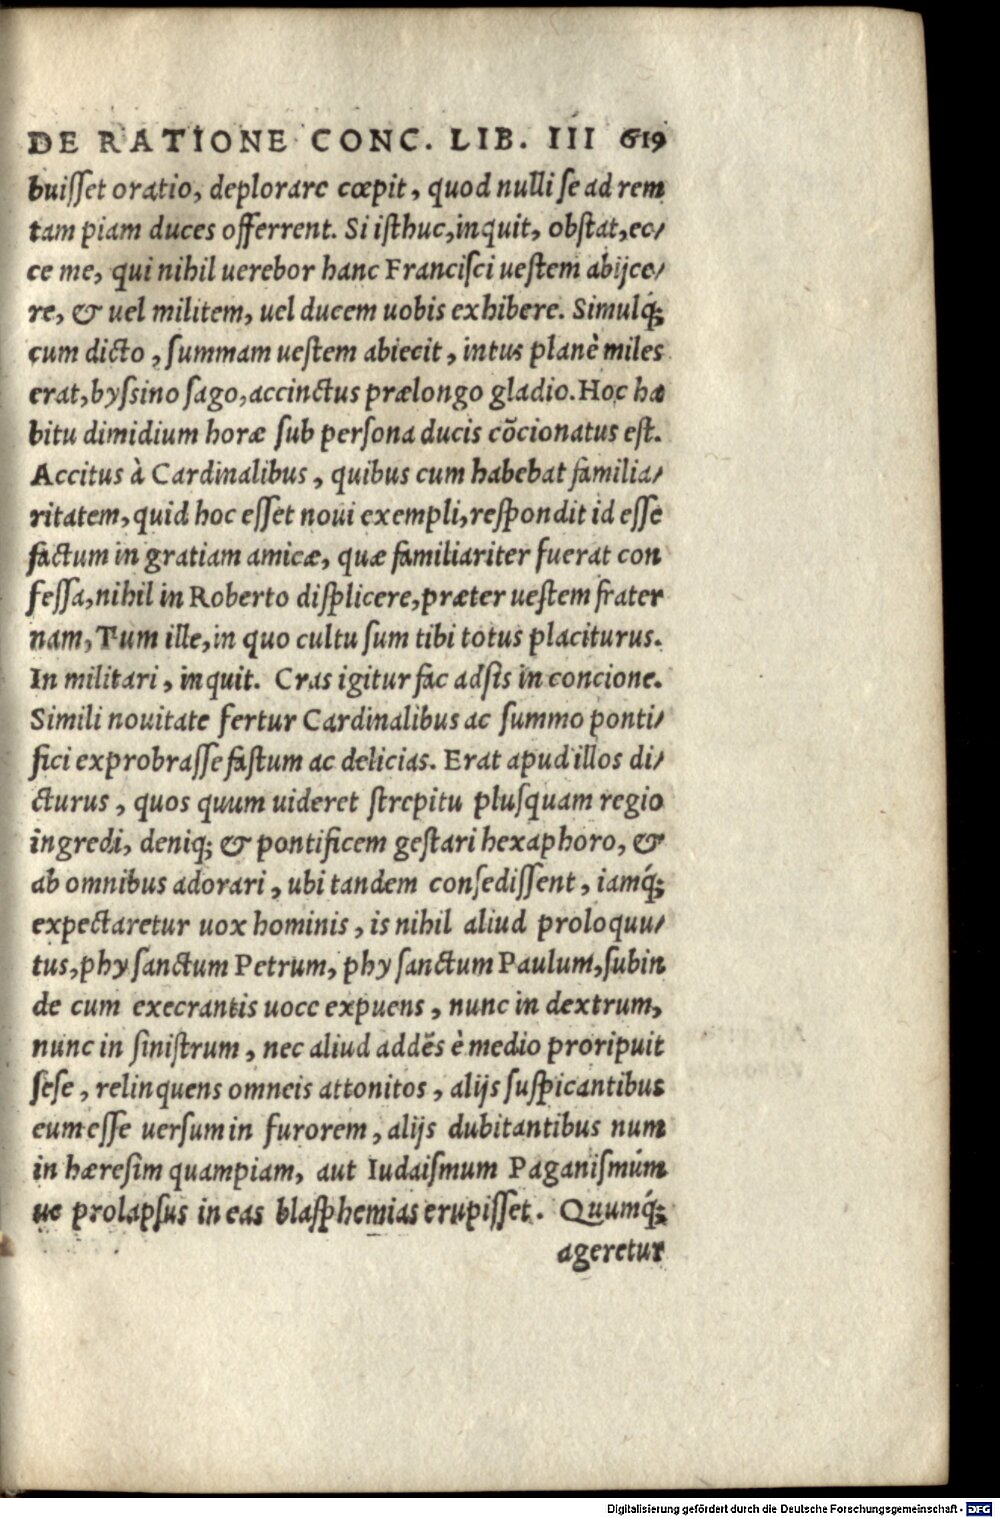 DE RATIONE CONC. LIB. III 619
buiſſet oratio, deplorare cœpit, quod nulli ſe ad rem
tam piam duces offerrent. Si iſthuc, inquit, obſtat, ec/
ce me, qui nihil uerebor hanc Franciſci ueſtem abijce/
re, & uel militem, uel ducem uobis exhibere. Simulq́;
cum dicto, ſummam ueſtem abiecit, intus planè miles
erat, byſsino ſago, accinctus prælongo gladio. Hoc ha
bitu dimidium horæ ſub perſona ducis cõcionatus eſt.
Accitus à Cardinalibus, quibus cum habebat familia/
ritatem, quid hoc eſſet noui exempli, reſpondit id eſſe
factum in gratiam amicæ, quæ familiariter fuerat con
feſſa, nihil in Roberto diſplicere, præter ueſtem frater
nam, Tum ille, in quo cultu ſum tibi totus placiturus.
In militari, inquit. Cras igitur fac adſis in concione.
Simili nouitate fertur Cardinalibus ac ſummo ponti/
fici exprobraſſe faſtum ac delicias. Erat apud illos di/
cturus, quos quum uideret ſtrepitu pluſquam regio
ingredi, deniq; & pontificem geſtari hexaphoro, &
ab omnibus adorari, ubi tandem conſediſſent, iamq́;
expectaretur uox hominis, is nihil aliud proloquu/
tus, phy ſanctum Petrum, phy ſanctum Paulum, ſubin
de cum execrantis uoce expuens, nunc in dextrum,
nunc in ſiniſtrum, nec aliud addẽs è medio proripuit
ſeſe, relinquens omneis attonitos, alijs ſuſpicantibus
eum eſſe uerſum in furorem, alijs dubitantibus num
in hæreſim quampiam, aut Iudaiſmum Paganiſmúm
ue prolapſus in eas blaſphemias erupiſſet. Quumq́;
ageretur
Digitalisierung gefördert durch die Deutsche Forschungsgemeinschaft - DFG